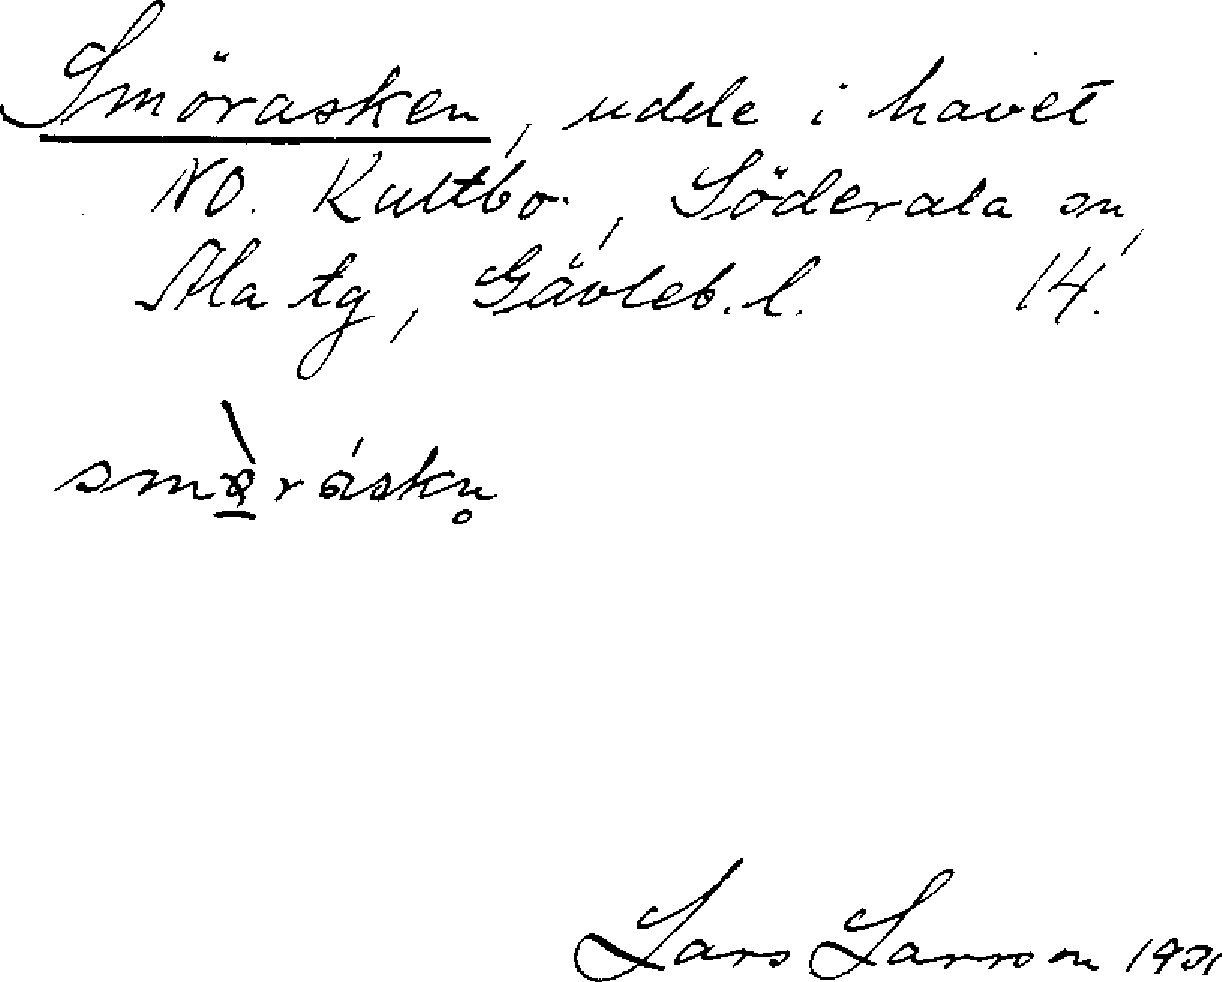 Smörasken, udde i havet
NO. Kultbo, Söderala sn,
Ala tg, Gävleb. l. 14.
Lars Larsson 1931